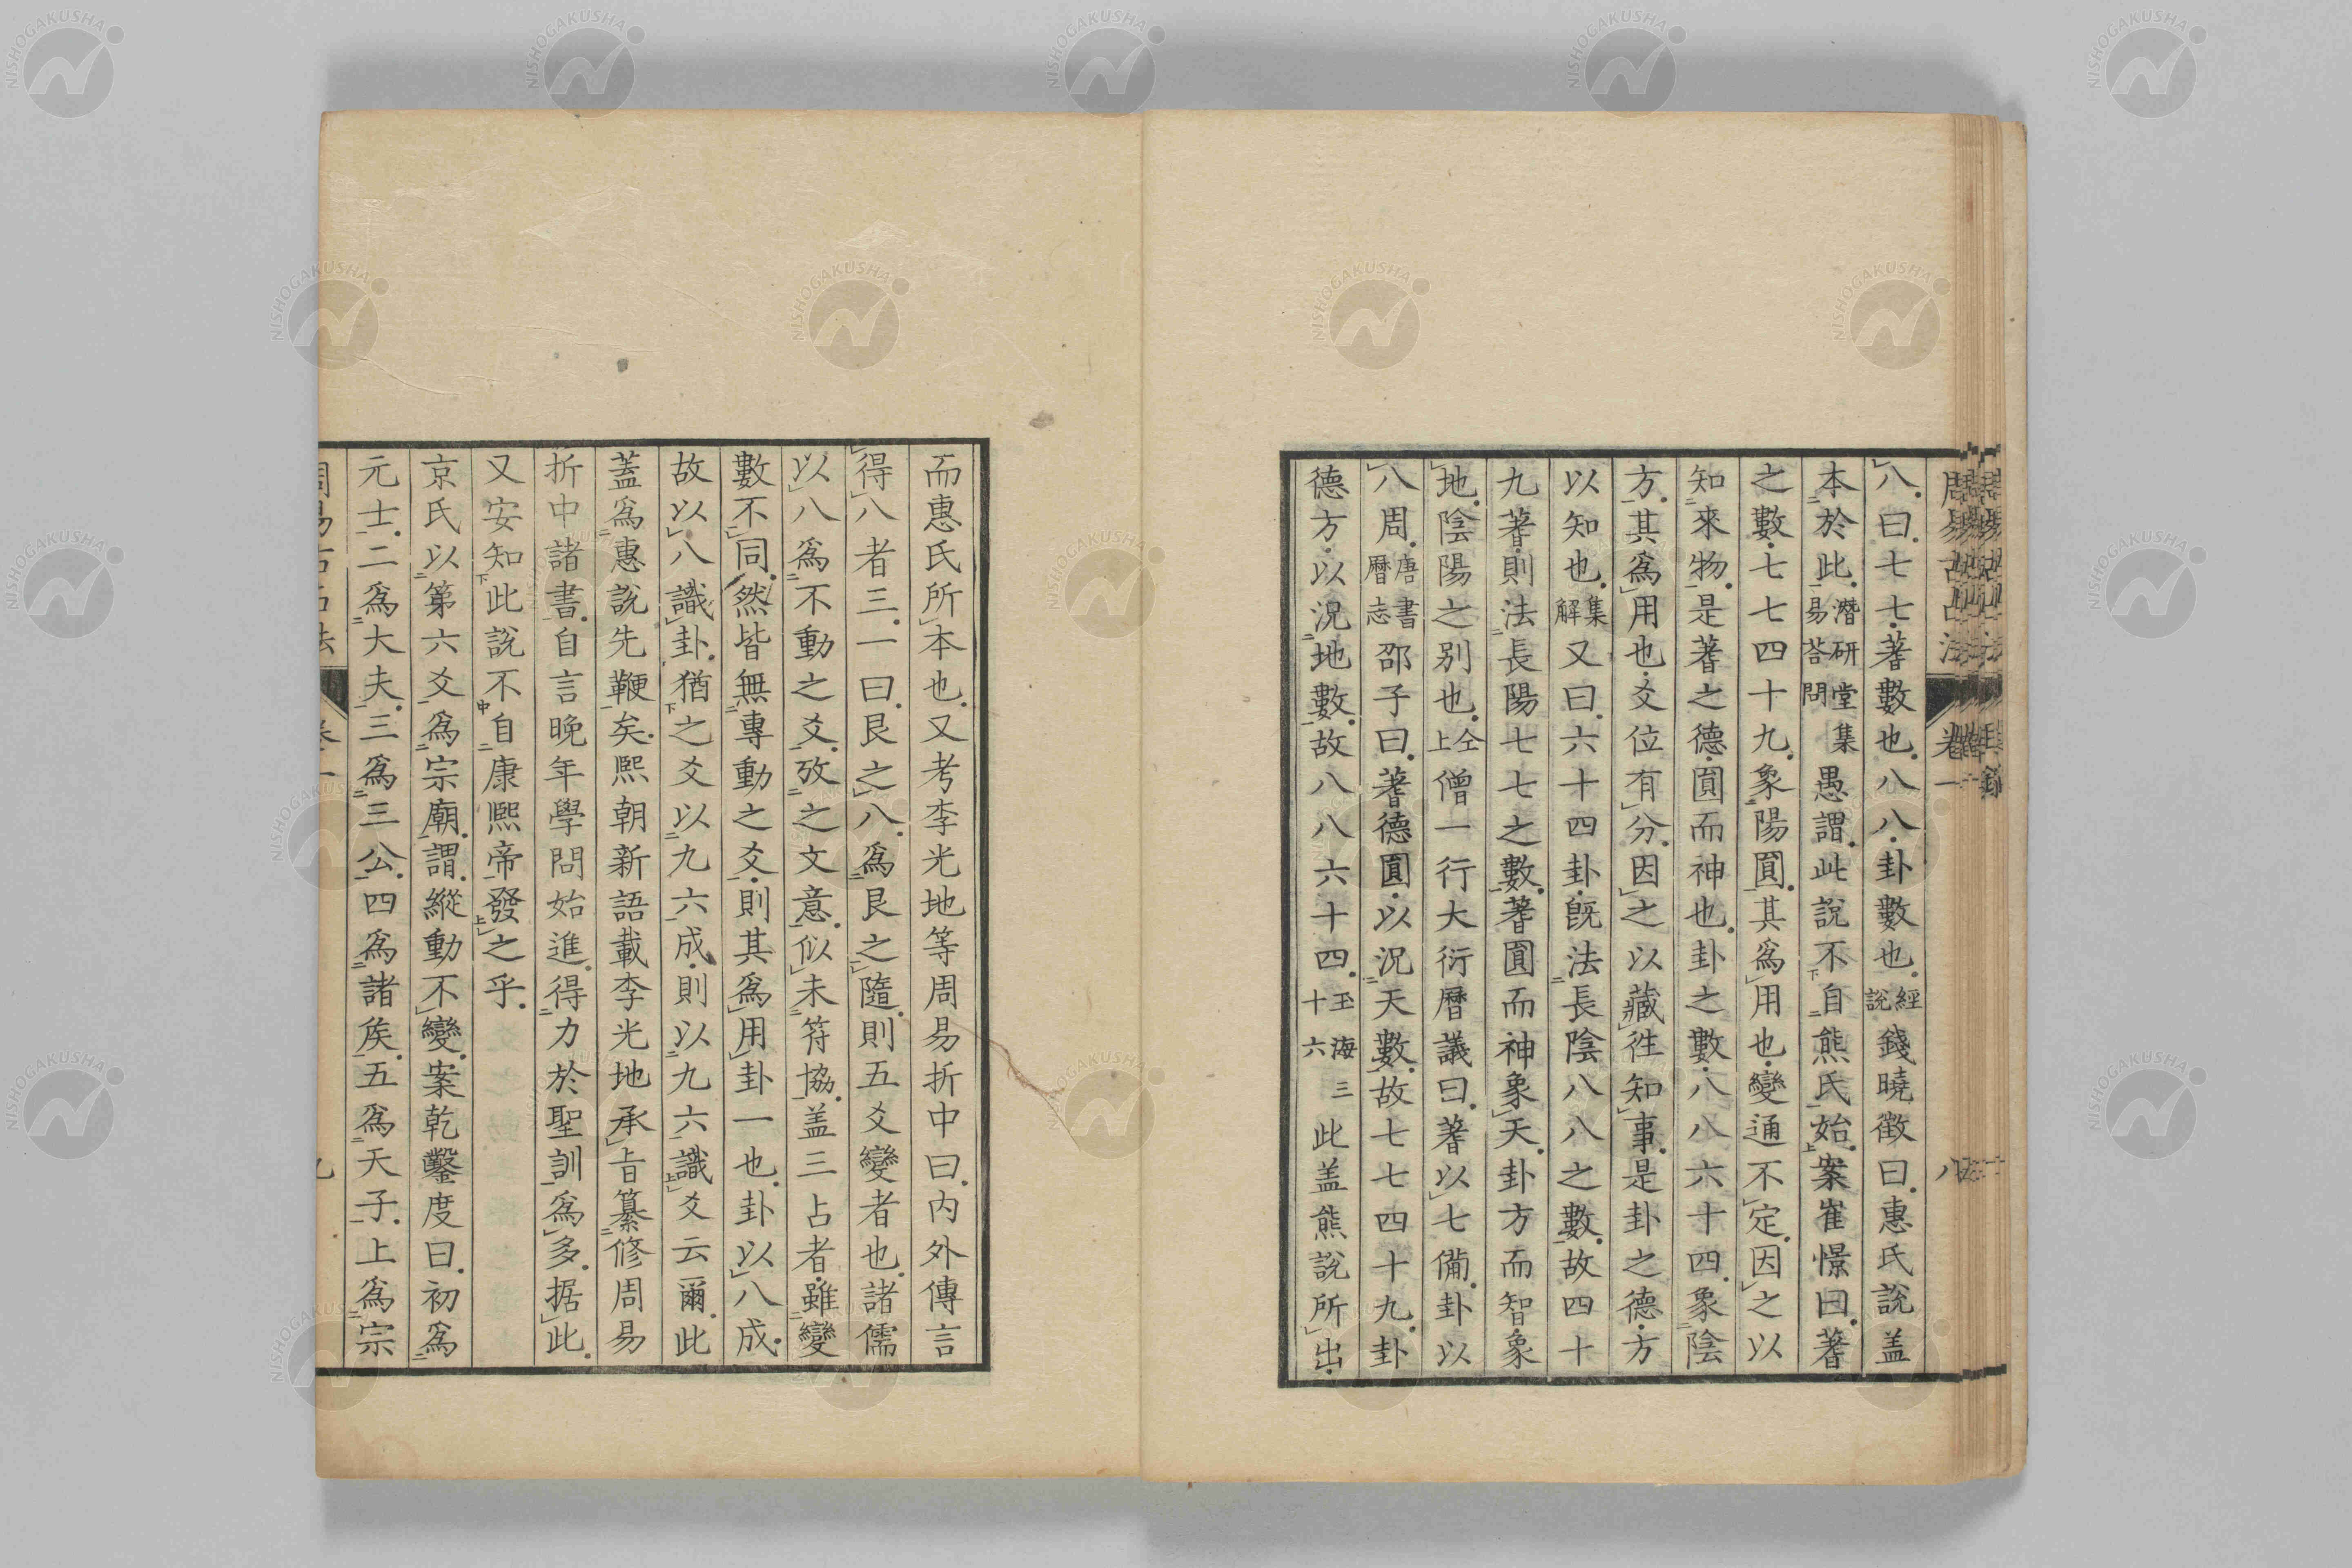 八曰七七蓍數也八八卦數也經說錢曉徵曰惠氏說盖
本於此潛研堂集易荅問愚謂此說不自熊氏始案崔憬曰蓍
之數七七四十九象陽圓其爲用也變通不定因之以
知來物是蓍之德圓而神也卦之數八八六十四象陰
方其爲用也爻位有分因之以藏徃知事是卦之德方
以知也集解又曰六十四卦旣法長陰八八之數故四十
九蓍則法長陽七七之數蓍圓而神象天卦方而智象
地陰陽之別也仝上僧一行大衍曆議曰蓍以七備卦以
八周唐書曆志邵子曰蓍德圓以況天數故七七四十九卦
德方以況地數故八八六十四玉海三十六此盖熊說所出
周易古占法 卷一 八
而惠氏所本也又考李光地等周易折中曰內外傳言
得八者三一曰艮之八爲艮之隨則五爻變者也諸儒
以八爲不動之爻攷之文意似未符協盖三占者雖變
數不同然皆無專動之爻則其爲用卦一也卦以八成
故以八識卦猶之爻以九六成則以九六識爻云爾此
蓋爲惠說先鞭矣熙朝新語載李光地承旨纂修周易
折中諸書自言晚年學問始進得力於聖訓爲多据此
又安知此說不自康熙帝發之乎
京氏以第六爻爲宗廟謂縱動不變案乾鑿度曰初爲
元士二爲大夫三爲三公四爲諸矦五爲天子上爲宗